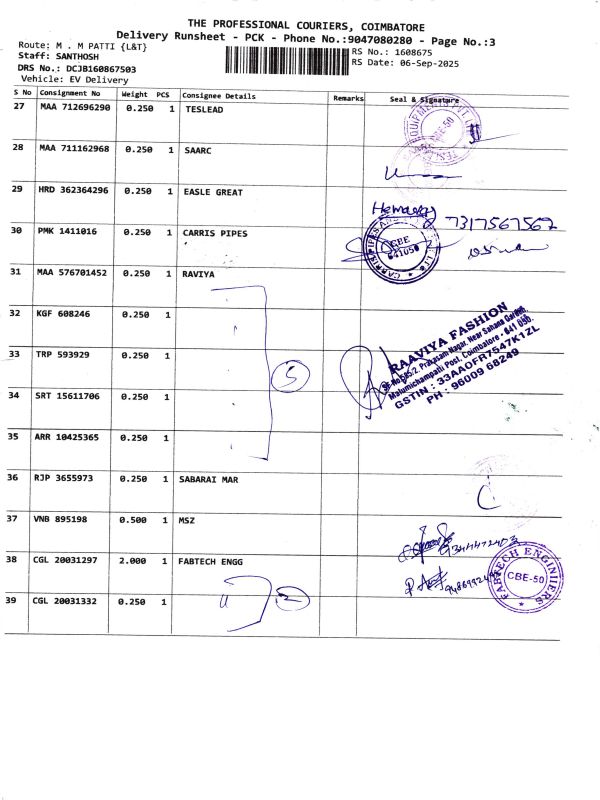 THE PROFESSIONAL COURIERS, COIMBATORE
Delivery Runsheet - PCK - Phone No.:9047080280 - Page No.:3
Route: M . M PATTI {L&T}
RS No.: 1608675
Staff: SANTHOSH
RS Date: 06-Sep-2025
DRS No.: DCJB160867503
Vehicle: EV Delivery
S No Consignment No Weight PCS Consignee Details Remarks Seal & Signature
27 MAA 712696290 0.250 1 TESLEAD
CBE-50
28 MAA 711162968 0.250 1 SAARC
29 HRD 362364296 0.250 1 EASLE GREAT
7317567562
30 PMK 1411016 0.250 1 CARRIS PIPES
CBE
641050
31 MAA 576701452 0.250 1 RAVIYA
32 KGF 608246 0.250 1
33 TRP 593929 0.250 1
5
RAAVIYA FASHION
Malumichampatti Post, Coimbatore - 641 050.
GSTIN : 33AAOFR7547K1ZL
PH : 96009 68249
34 SRT 15611706 0.250 1
35 ARR 10425365 0.250 1
36 RJP 3655973 0.250 1 SABARAI MAR
37 VNB 895198 0.500 1 MSZ
38 CGL 20031297 2.000 1 FABTECH ENGG
FABTECH ENGINIIERS
CBE-50
39 CGL 20031332 0.250 1
2